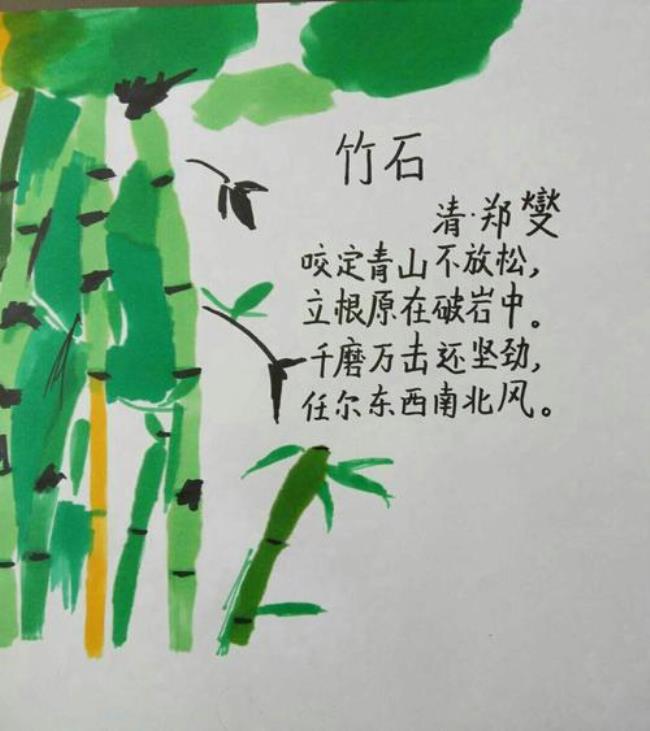 竹石
清·郑燮
咬定青山不放松,
立根原在破岩中。
千磨万击还坚劲,
任尔东西南北风。